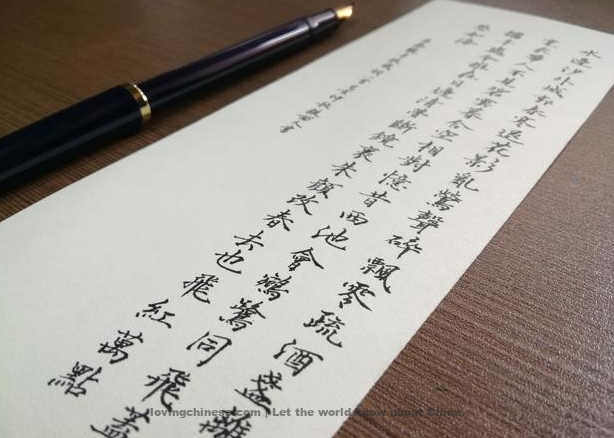 水邊沙外城郭春寒退花影亂鶯聲碎飄零疏酒盞離
寬衣帶人不見碧雲暮合空相對憶昔西池會鵷鷺同飛蓋
攜手處今誰在日邊清夢斷鏡裏朱顏改春去也飛紅萬點
愁如海
lovingchinese.com | Let the world know about China.